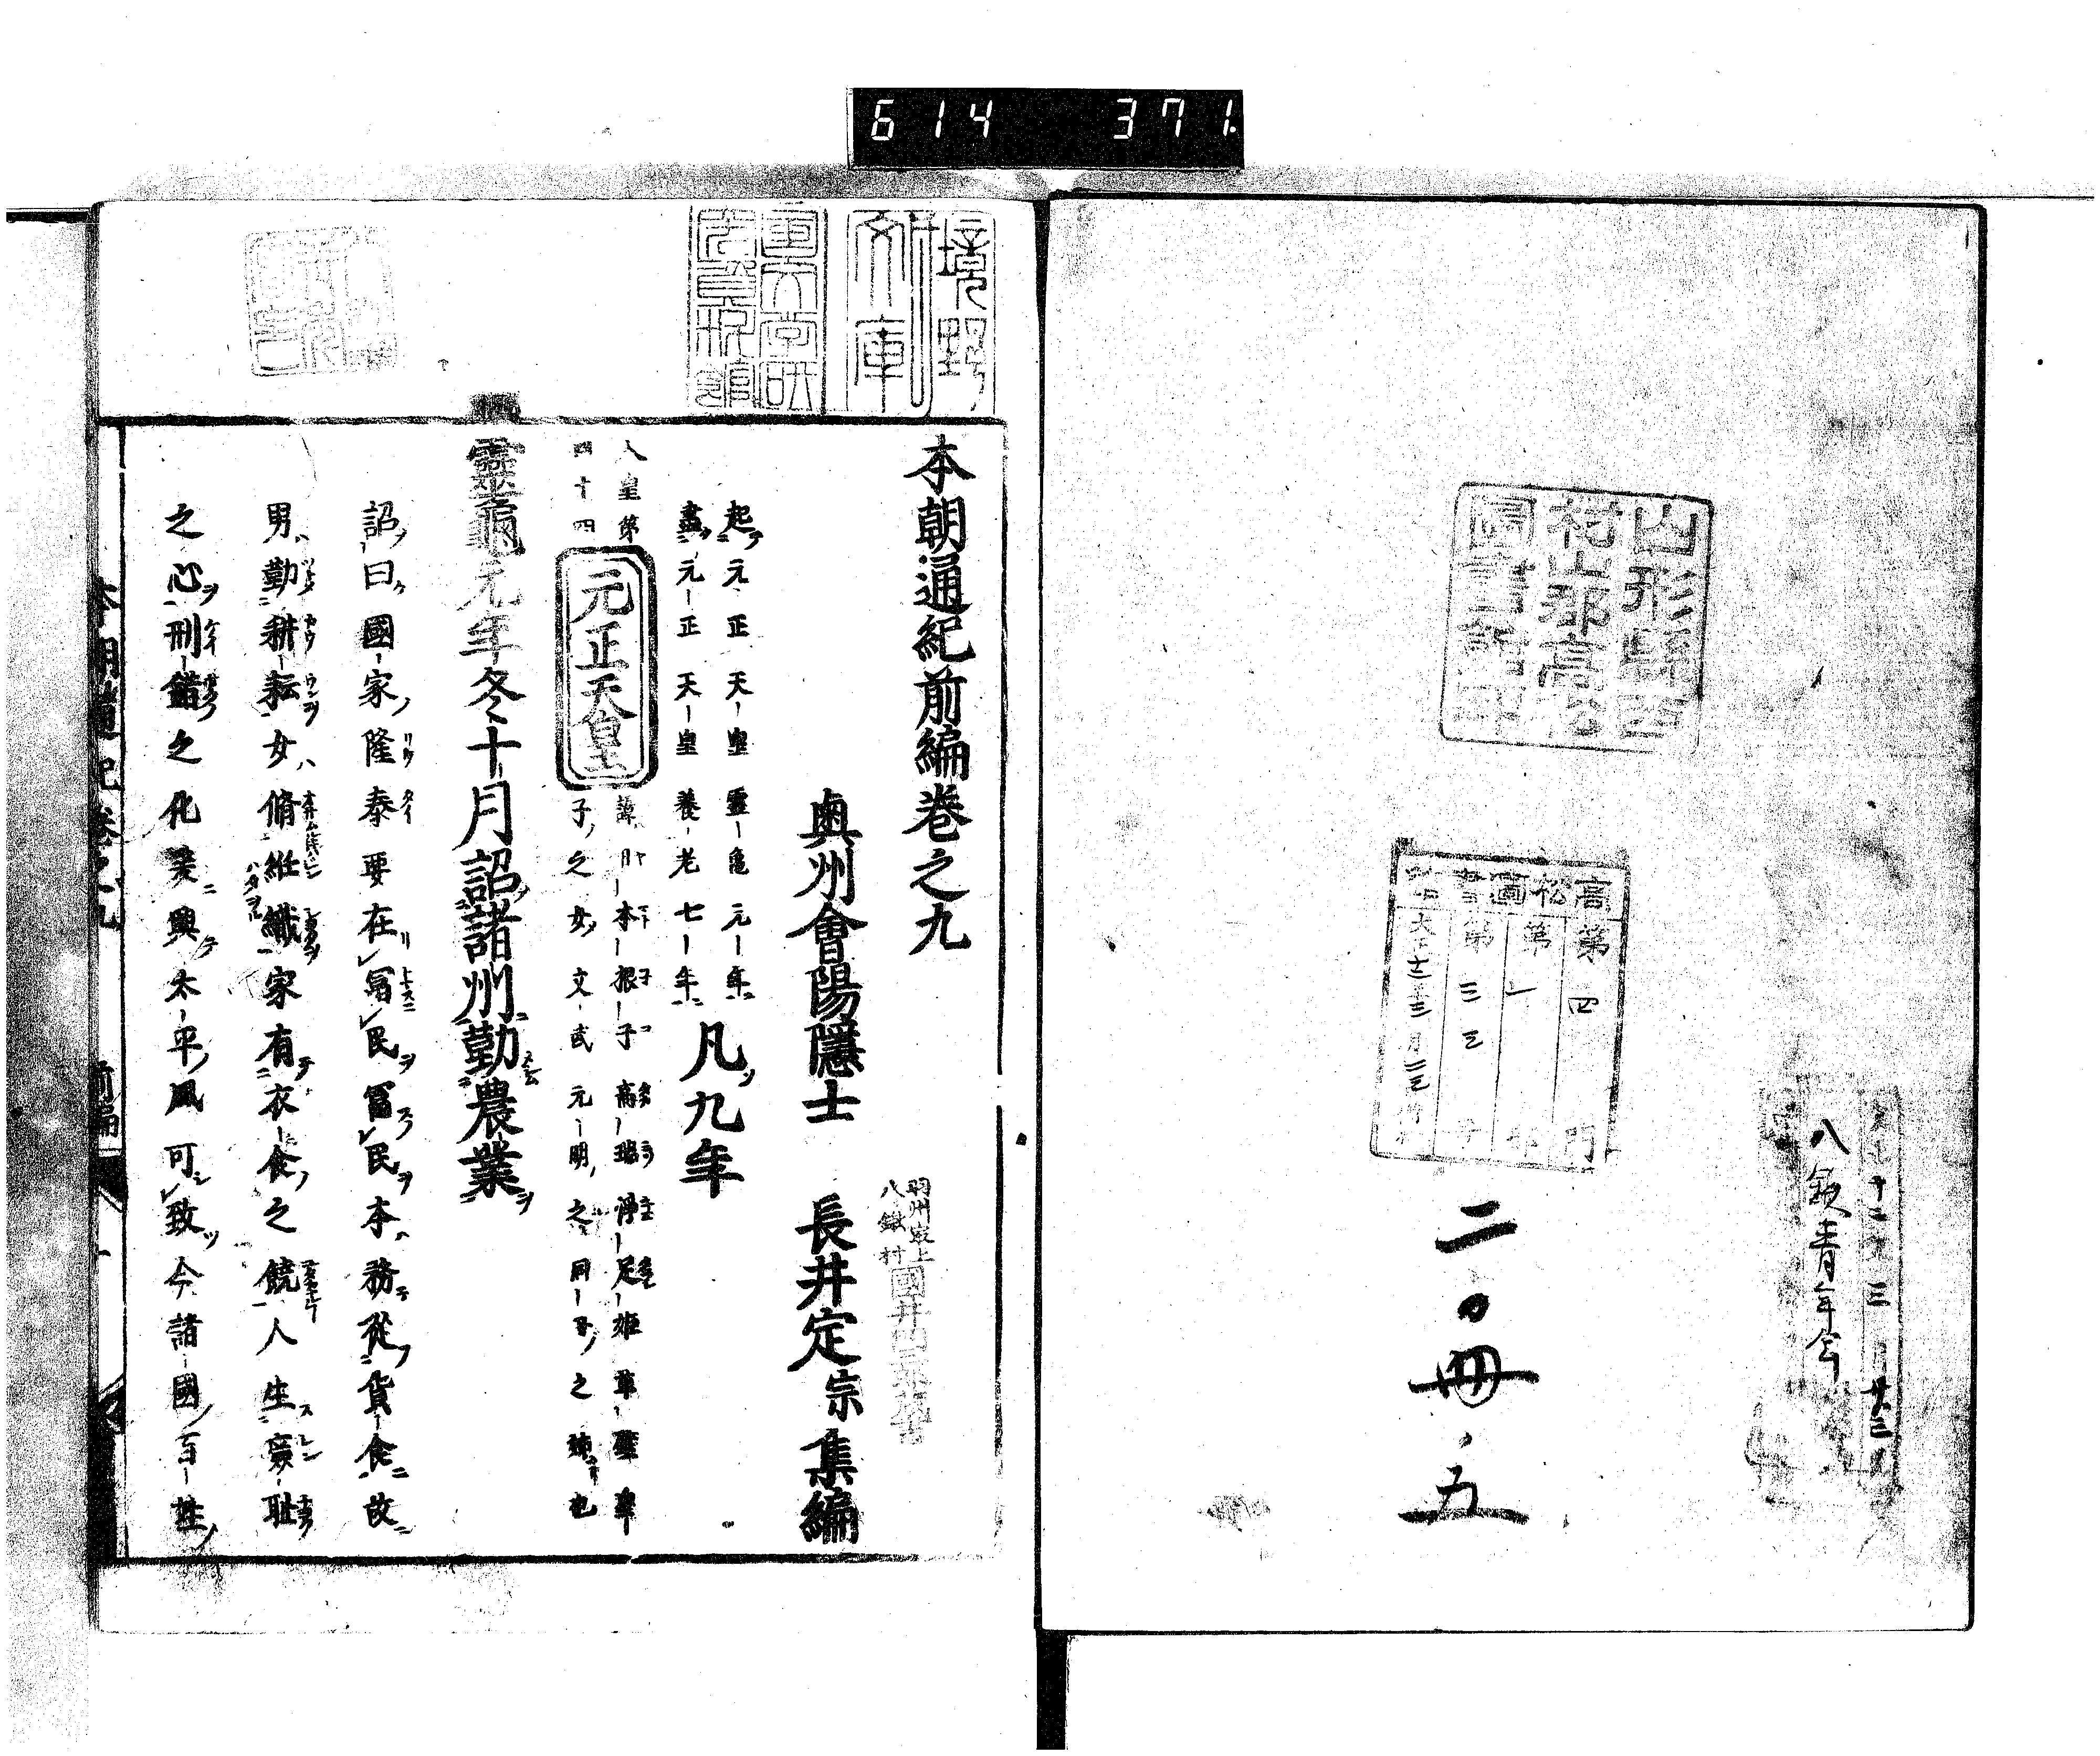 614 371.
山形縣西
村山郡高松
圖書館印
高松圖書
第四門
第一部
第三三号
大正十二年三月廿三日寄付
八鍬青年会
二〇冊、五
境野
文庫
本朝通紀前編巻之九
奥州會陽隱士 長井定宗集編
羽州最上
八鍬村
起元正天皇靈亀元年
盡元正天皇養老七年
凡九年
人皇第
四十四
元正天皇
諱日本根子高瑞淨足姫
子之女文武元明之同子之姉也
靈龜元年冬十月詔諸州勤農業
詔曰國家隆泰要在冨民冨民本務從貨食故
男勤耕耘女脩紝織家有衣食之饒人生廉耻
之心刑錯之化爰興太平風可致今諸國百姓
本朝通紀巻之九 前編